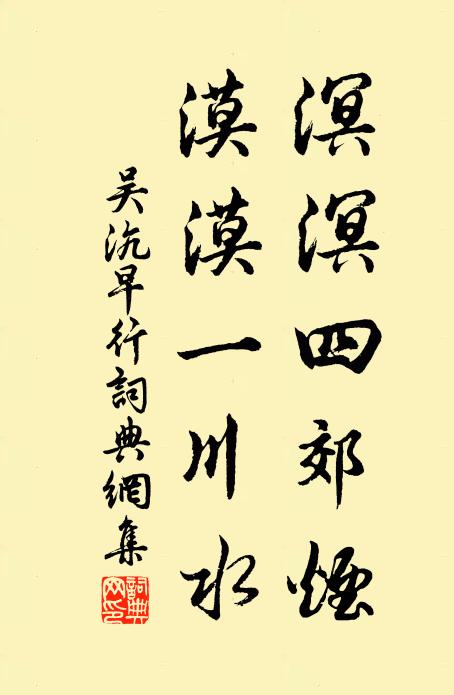 溟溟四郊煙
漠漠一川水
吴沆早行詞典網集
詞典網印